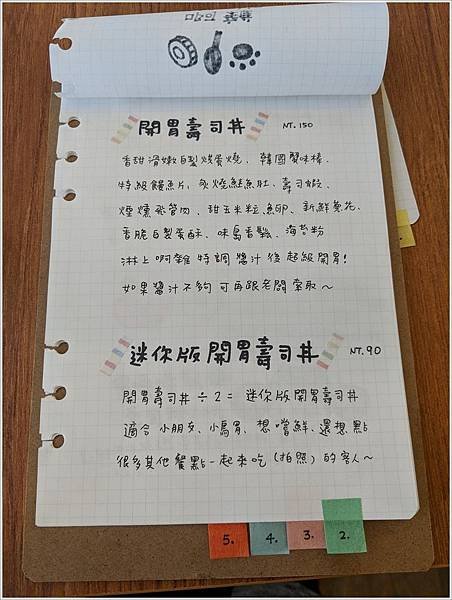 開胃壽司丼 NT.150
香甜滑嫩自製炊蛋燒、韓國蟹味棒、
特級鰻魚片、炙燒鮭魚肚、壽司蝦、
煙燻飛管肉、甜玉米粒、魚卵、新鮮蔥花、
香脆自製蛋酥、味島香鬆、海苔粉
淋上啊雜特調醬汁後超級開胃!
如果醬汁不夠可再跟老闆索取~
迷你版開胃壽司丼 NT.90
開胃壽司丼÷2= 迷你版開胃壽司丼
適合小朋友、小鳥胃、想嚐鮮、還想點
很多其他餐點一起來吃(拍照)的客人~
5. 4. 3. 2.